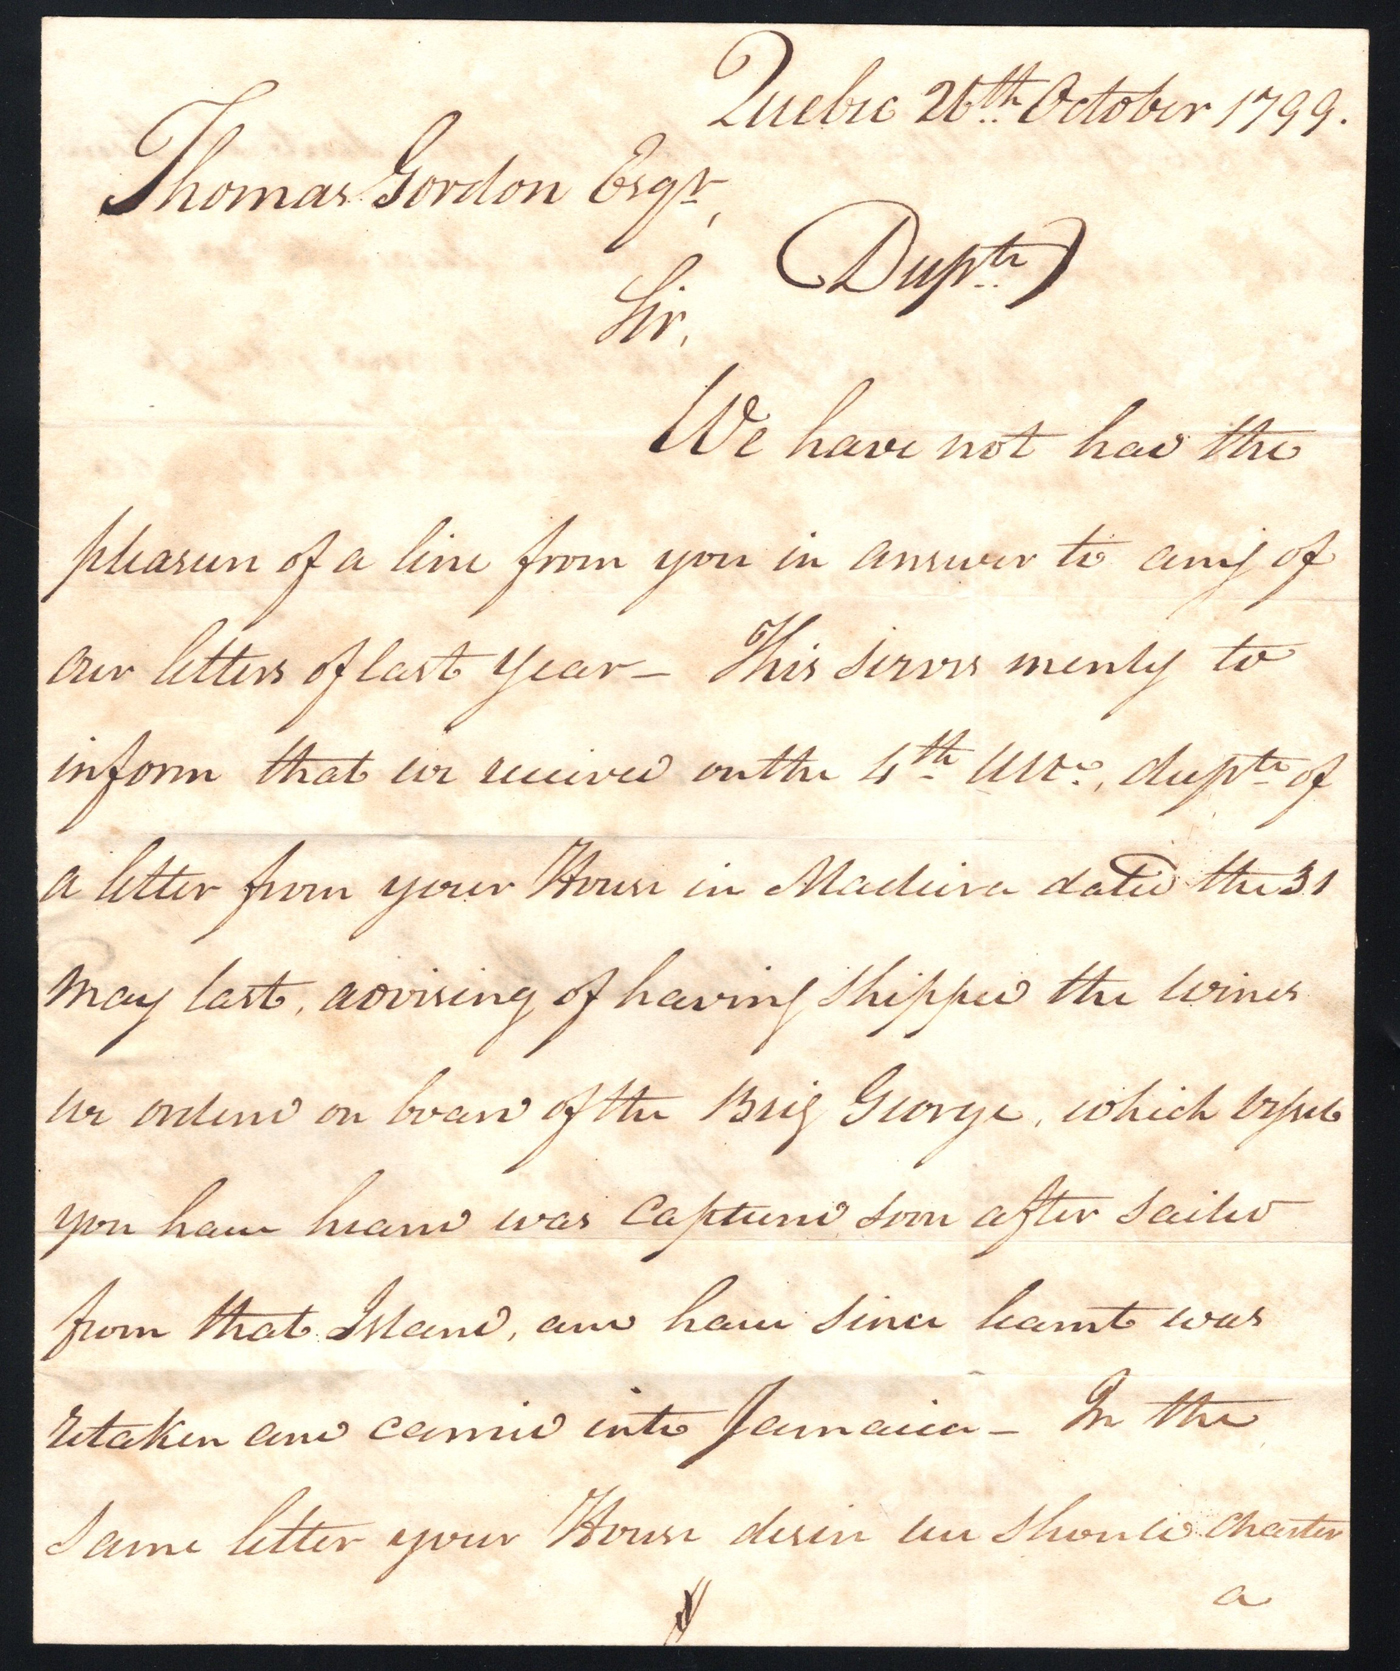 Quebec 26th October 1799.
Thomas Gordon Esqr,
(Dupte)
Sir,
We have not had the
pleasure of a line from you in answer to any of
our letters of last year — This serves merely to
inform that we received on the 4th Ulto., dupte of
a letter from your House in Madeira dated the 31
May last, advising of having shipped the wines
we ordered on board of the Brig George, which expect
you have heard was captured soon after sailed
from that Island, and have since learnt was
retaken and carried into Jamaica — In the
same letter your House desire we should charter
a